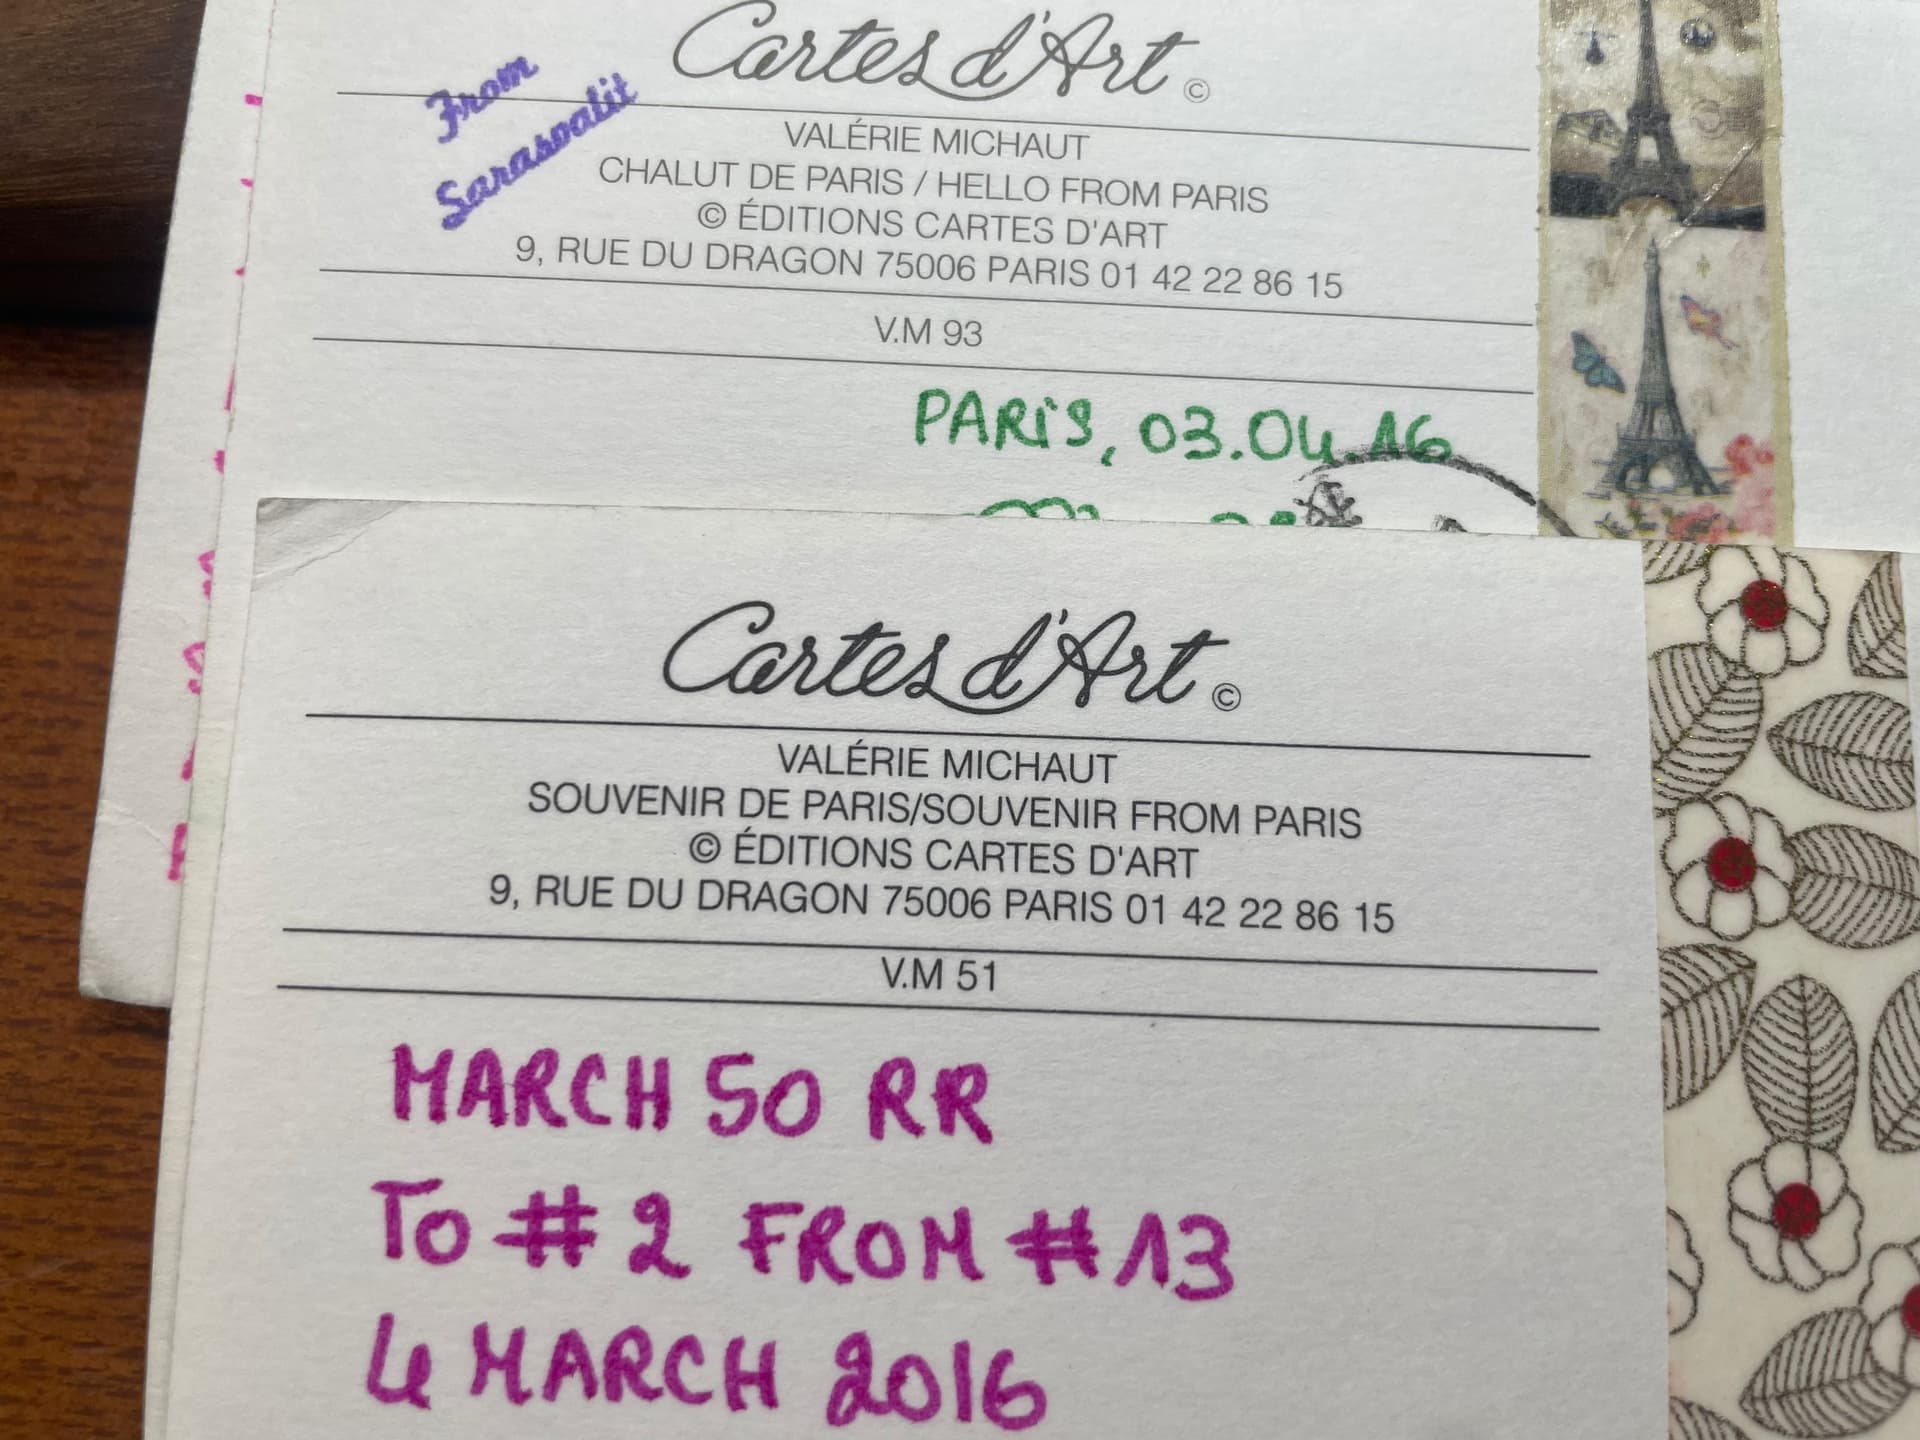 Cartes d'Art ©
From
Sarasvalit
VALÉRIE MICHAUT
CHALUT DE PARIS / HELLO FROM PARIS
© ÉDITIONS CARTES D'ART
9, RUE DU DRAGON 75006 PARIS 01 42 22 86 15
V.M 93
PARIS, 03.04.16
Cartes d'Art ©
VALÉRIE MICHAUT
SOUVENIR DE PARIS/SOUVENIR FROM PARIS
© ÉDITIONS CARTES D'ART
9, RUE DU DRAGON 75006 PARIS 01 42 22 86 15
V.M 51
MARCH 50 RR
To # 2 FROM # 13
4 MARCH 2016